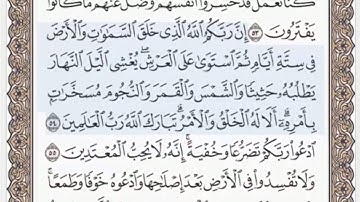 كنا نعمل قد خسروا أنفسهم وضل عنهم ما كانوا
يفترون ٥٣ إِنَّ رَبَّكُمُ ٱللَّهُ ٱلَّذِى خَلَقَ ٱلسَّمَٰوَٰتِ وَٱلْأَرْضَ
فِى سِتَّةِ أَيَّامٍ ثُمَّ ٱسْتَوَىٰ عَلَى ٱلْعَرْشِ يُغْشِى ٱلَّيْلَ ٱلنَّهَارَ
يَطْلُبُهُۥ حَثِيثًا وَٱلشَّمْسَ وَٱلْقَمَرَ وَٱلنُّجُومَ مُسَخَّرَٰتٍۭ
بِأَمْرِهِۦٓ ۗ أَلَا لَهُ ٱلْخَلْقُ وَٱلْأَمْرُ ۗ تَبَارَكَ ٱللَّهُ رَبُّ ٱلْعَٰلَمِينَ ٥٤
ٱدْعُوا۟ رَبَّكُمْ تَضَرُّعًا وَخُفْيَةً ۚ إِنَّهُۥ لَا يُحِبُّ ٱلْمُعْتَدِينَ ٥٥
وَلَا تُفْسِدُوا۟ فِى ٱلْأَرْضِ بَعْدَ إِصْلَٰحِهَا وَٱدْعُوهُ خَوْفًا وَطَمَعًا ۚ